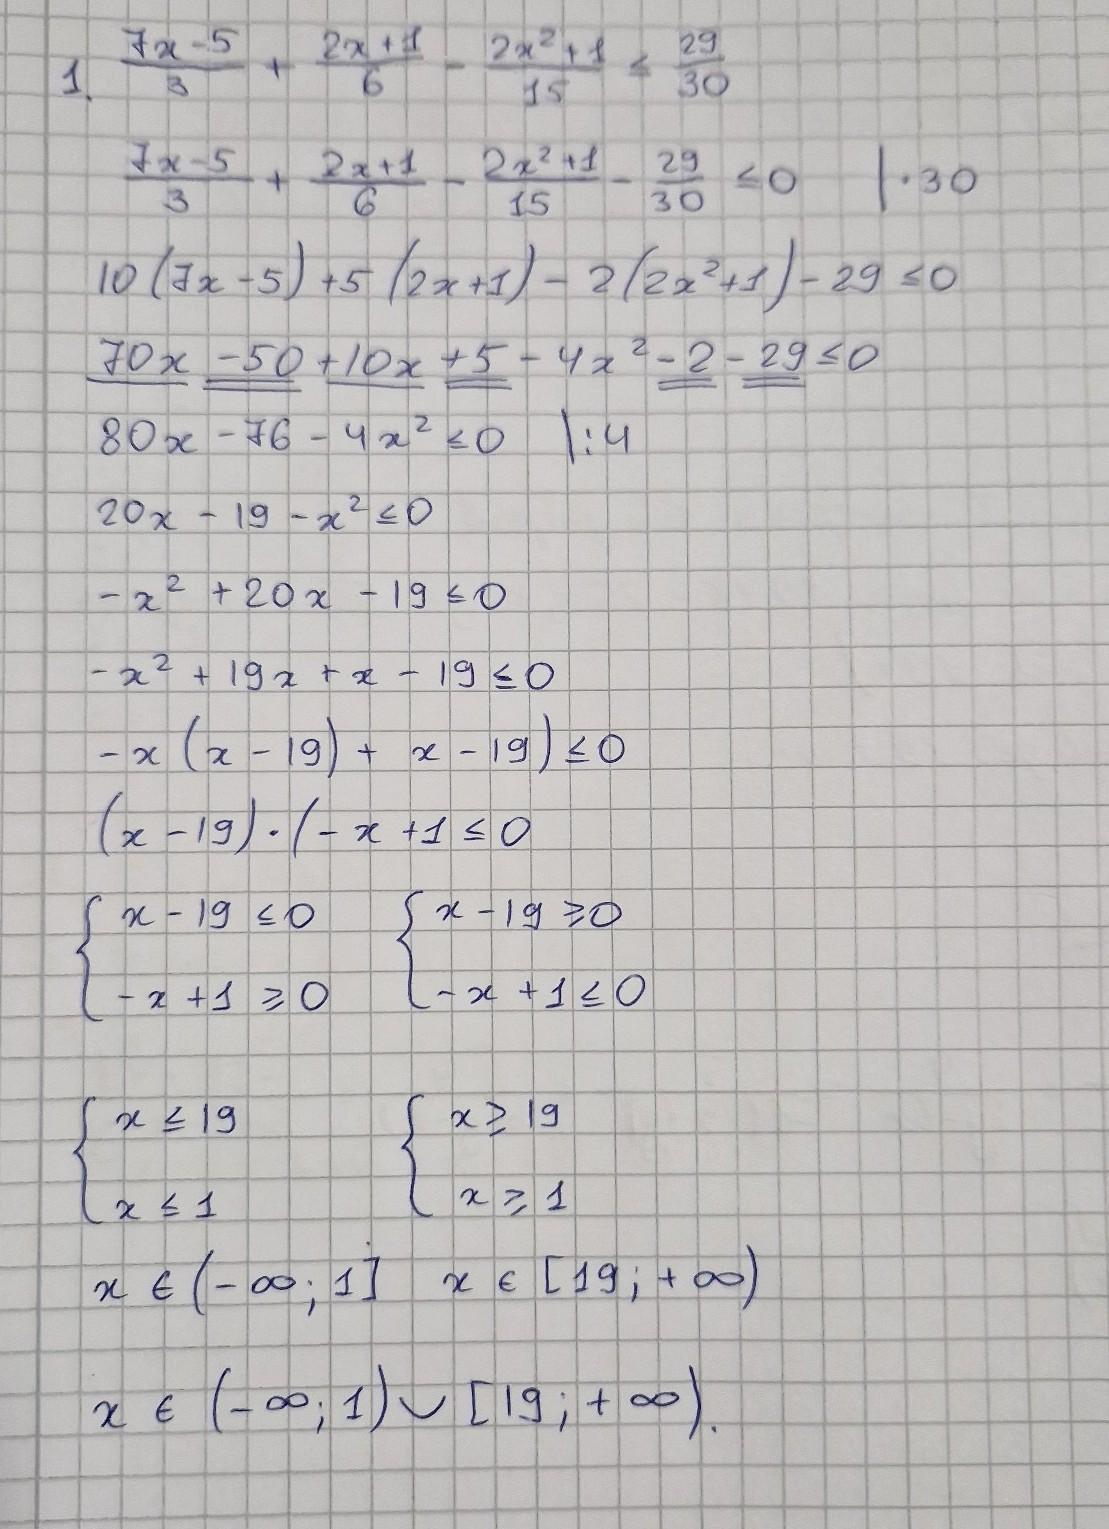 1. (7x-5)/3 + (2x+1)/6 - (2x²+1)/15 ≤ 29/30
(7x-5)/3 + (2x+1)/6 - (2x²+1)/15 - 29/30 ≤ 0 |·30
10(7x-5)+5(2x+1)-2(2x²+1)-29≤0
70x-50+10x+5-4x²-2-29≤0
80x-76-4x²≤0 |:4
20x-19-x²≤0
-x²+20x-19≤0
-x²+19x+x-19≤0
-x(x-19)+ x-19)≤0
(x-19)·(-x+1≤0
{ x-19≤0 { x-19≥0
-x+1≥0 -x+1≤0
{ x≤19 { x≥19
x≤1 x≥1
x∈(-∞;1] x∈[19;+∞)
x∈(-∞;1)∪[19;+∞).